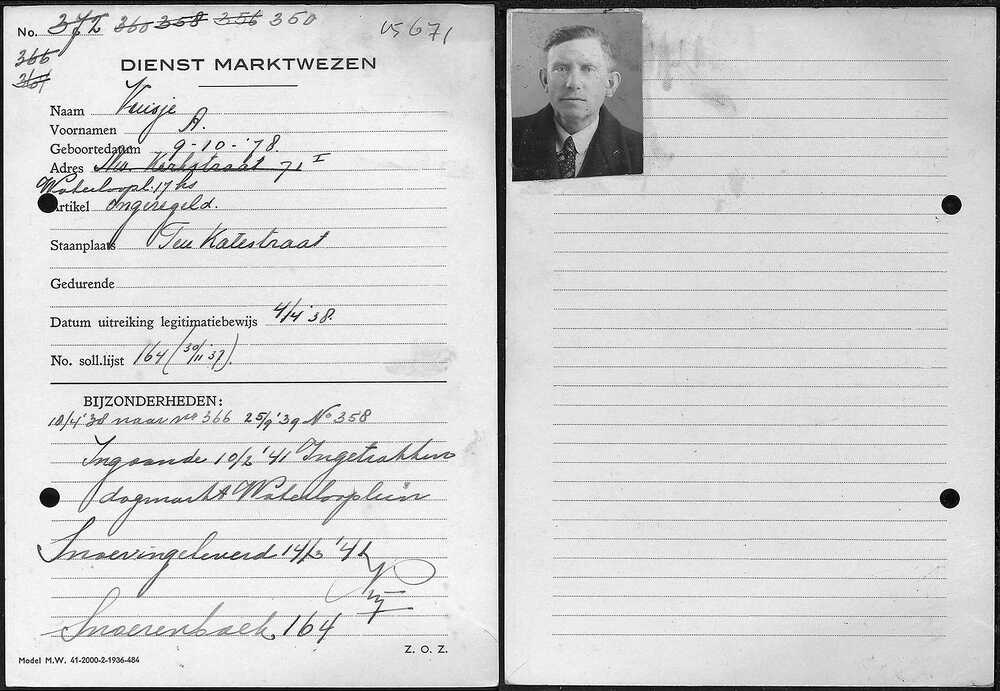 No. 372 360 358 356 350
U5671
366
361
DIENST MARKTWEZEN
Naam Kuisje
Voornamen A.
Geboortedatum 9-10-'78.
Adres Kerkstraat 71 I
Waterloopl. 17 hs
Artikel ongeregeld.
Staanplaats Ten Katestraat
Gedurende
Datum uitreiking legitimatiebewijs 4/4 '38.
No. soll.lijst 164 (30/11 37).
BIJZONDERHEDEN:
10/4 '38 naar no 366 25/9 '39 No 358
Ingaande 10/2 '41 Ingetrokken
dagmarkt Waterlooplein
Snoer ingeleverd 14/3 '42
Snoerenboek 164
Z. O. Z.
Model M.W. 41-2000-2-1936-484